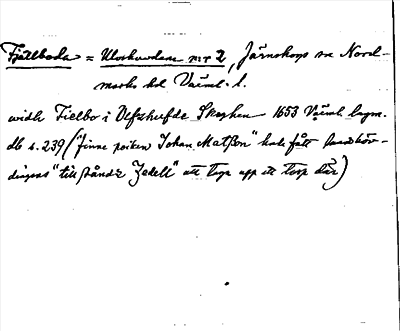 Fjällboda = Ulvshuvdan nr 2, Järnskogs sn Nord-
marks hd Värml. l.
widh Fielbo i Vlfzhufde Skoghen 1653 Värml. lagm.
db s. 239 ("finne poiken Johan Matßon" hade fått landshöv-
dingens "tillstånd Zedell" att taga upp ett torp där)